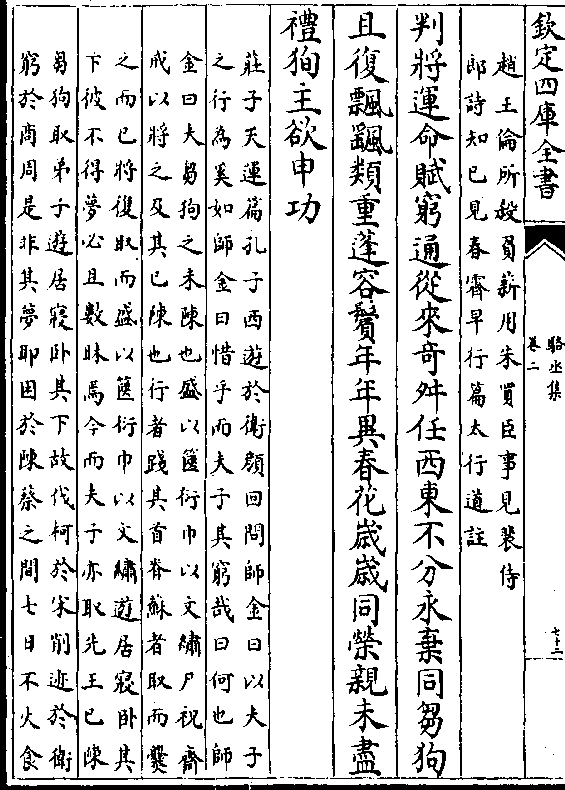 欽定四庫全書
駱丞集
卷二
七十二
趙王倫所殺負薪用朱買臣事見裴侍
郎詩知已見春霽早行篇太行道註
判將運命賦窮通從來奇舛任西東不分永棄同芻狗
且復飄颻類重蓬容鬢年年異春花歲歲同榮親未盡
禮狥主欲申功
莊子天運篇孔子西遊於衛顔回問師金曰以夫子
之行為奚如師金曰惜乎而夫子其窮哉曰何也師
金曰夫芻狗之未陳也盛以篋衍巾以文繡尸祝齋
戒以將之及其已陳也行者踐其首脊蘇者取而爨
之而已將復取而盛以篋衍巾以文繡遊居寢卧其
下彼不得夢必且數眯焉今而夫子亦取先王已陳
芻狗取弟子遊居寢卧其下故伐柯於宋削迹於衛
窮於商周是非其夢耶困於陳蔡之間七日不火食